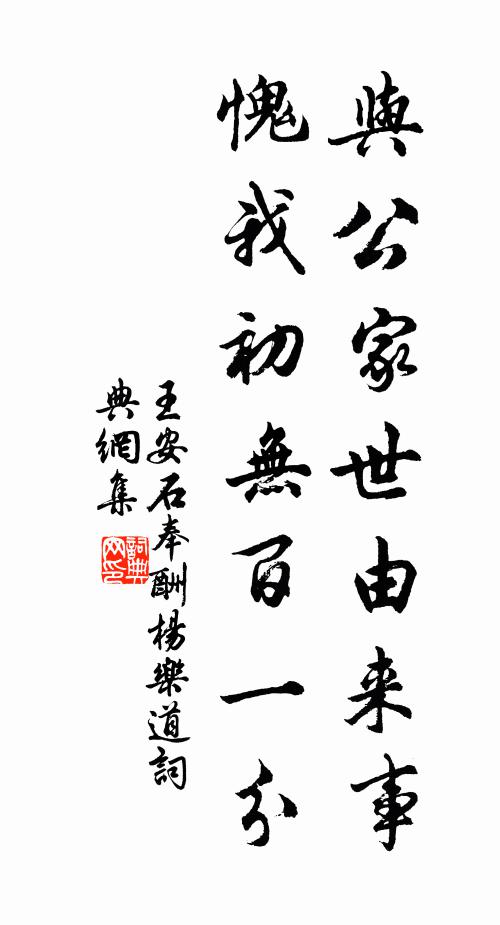 與公家世由来事
愧我初無百一分
王安石奉酬楊樂道詞
典網集
詞典
网印